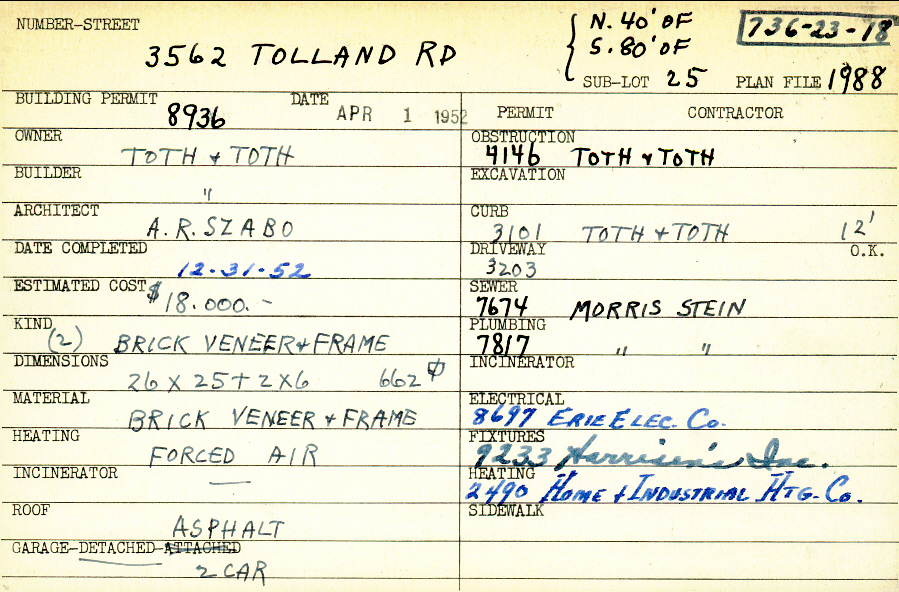 NUMBER-STREET
3562 TOLLAND RD
N. 40' OF
S. 80' OF
SUB-LOT 25
736-23-18
PLAN FILE 1988
BUILDING PERMIT 8936
DATE APR 1 1952
OWNER TOTH + TOTH
BUILDER "
ARCHITECT A.R. SZABO
DATE COMPLETED 12-31-52
ESTIMATED COST $18.000.-
KIND (2) BRICK VENEER + FRAME
DIMENSIONS 26 X 25 + 2 X 6 662 ⌀
MATERIAL BRICK VENEER + FRAME
HEATING FORCED AIR
INCINERATOR —
ROOF ASPHALT
GARAGE-DETACHED-ATTACHED
2 CAR
PERMIT CONTRACTOR
OBSTRUCTION
4146 TOTH + TOTH
EXCAVATION
CURB
3101 TOTH + TOTH 12'
DRIVEWAY O.K.
3203
SEWER
7674 MORRIS STEIN
PLUMBING
7817 " "
INCINERATOR
ELECTRICAL
8697 ERIE ELEC. CO.
FIXTURES
9233 Harrison's Inc.
HEATING
2490 HOME + INDUSTRIAL HTG. CO.
SIDEWALK